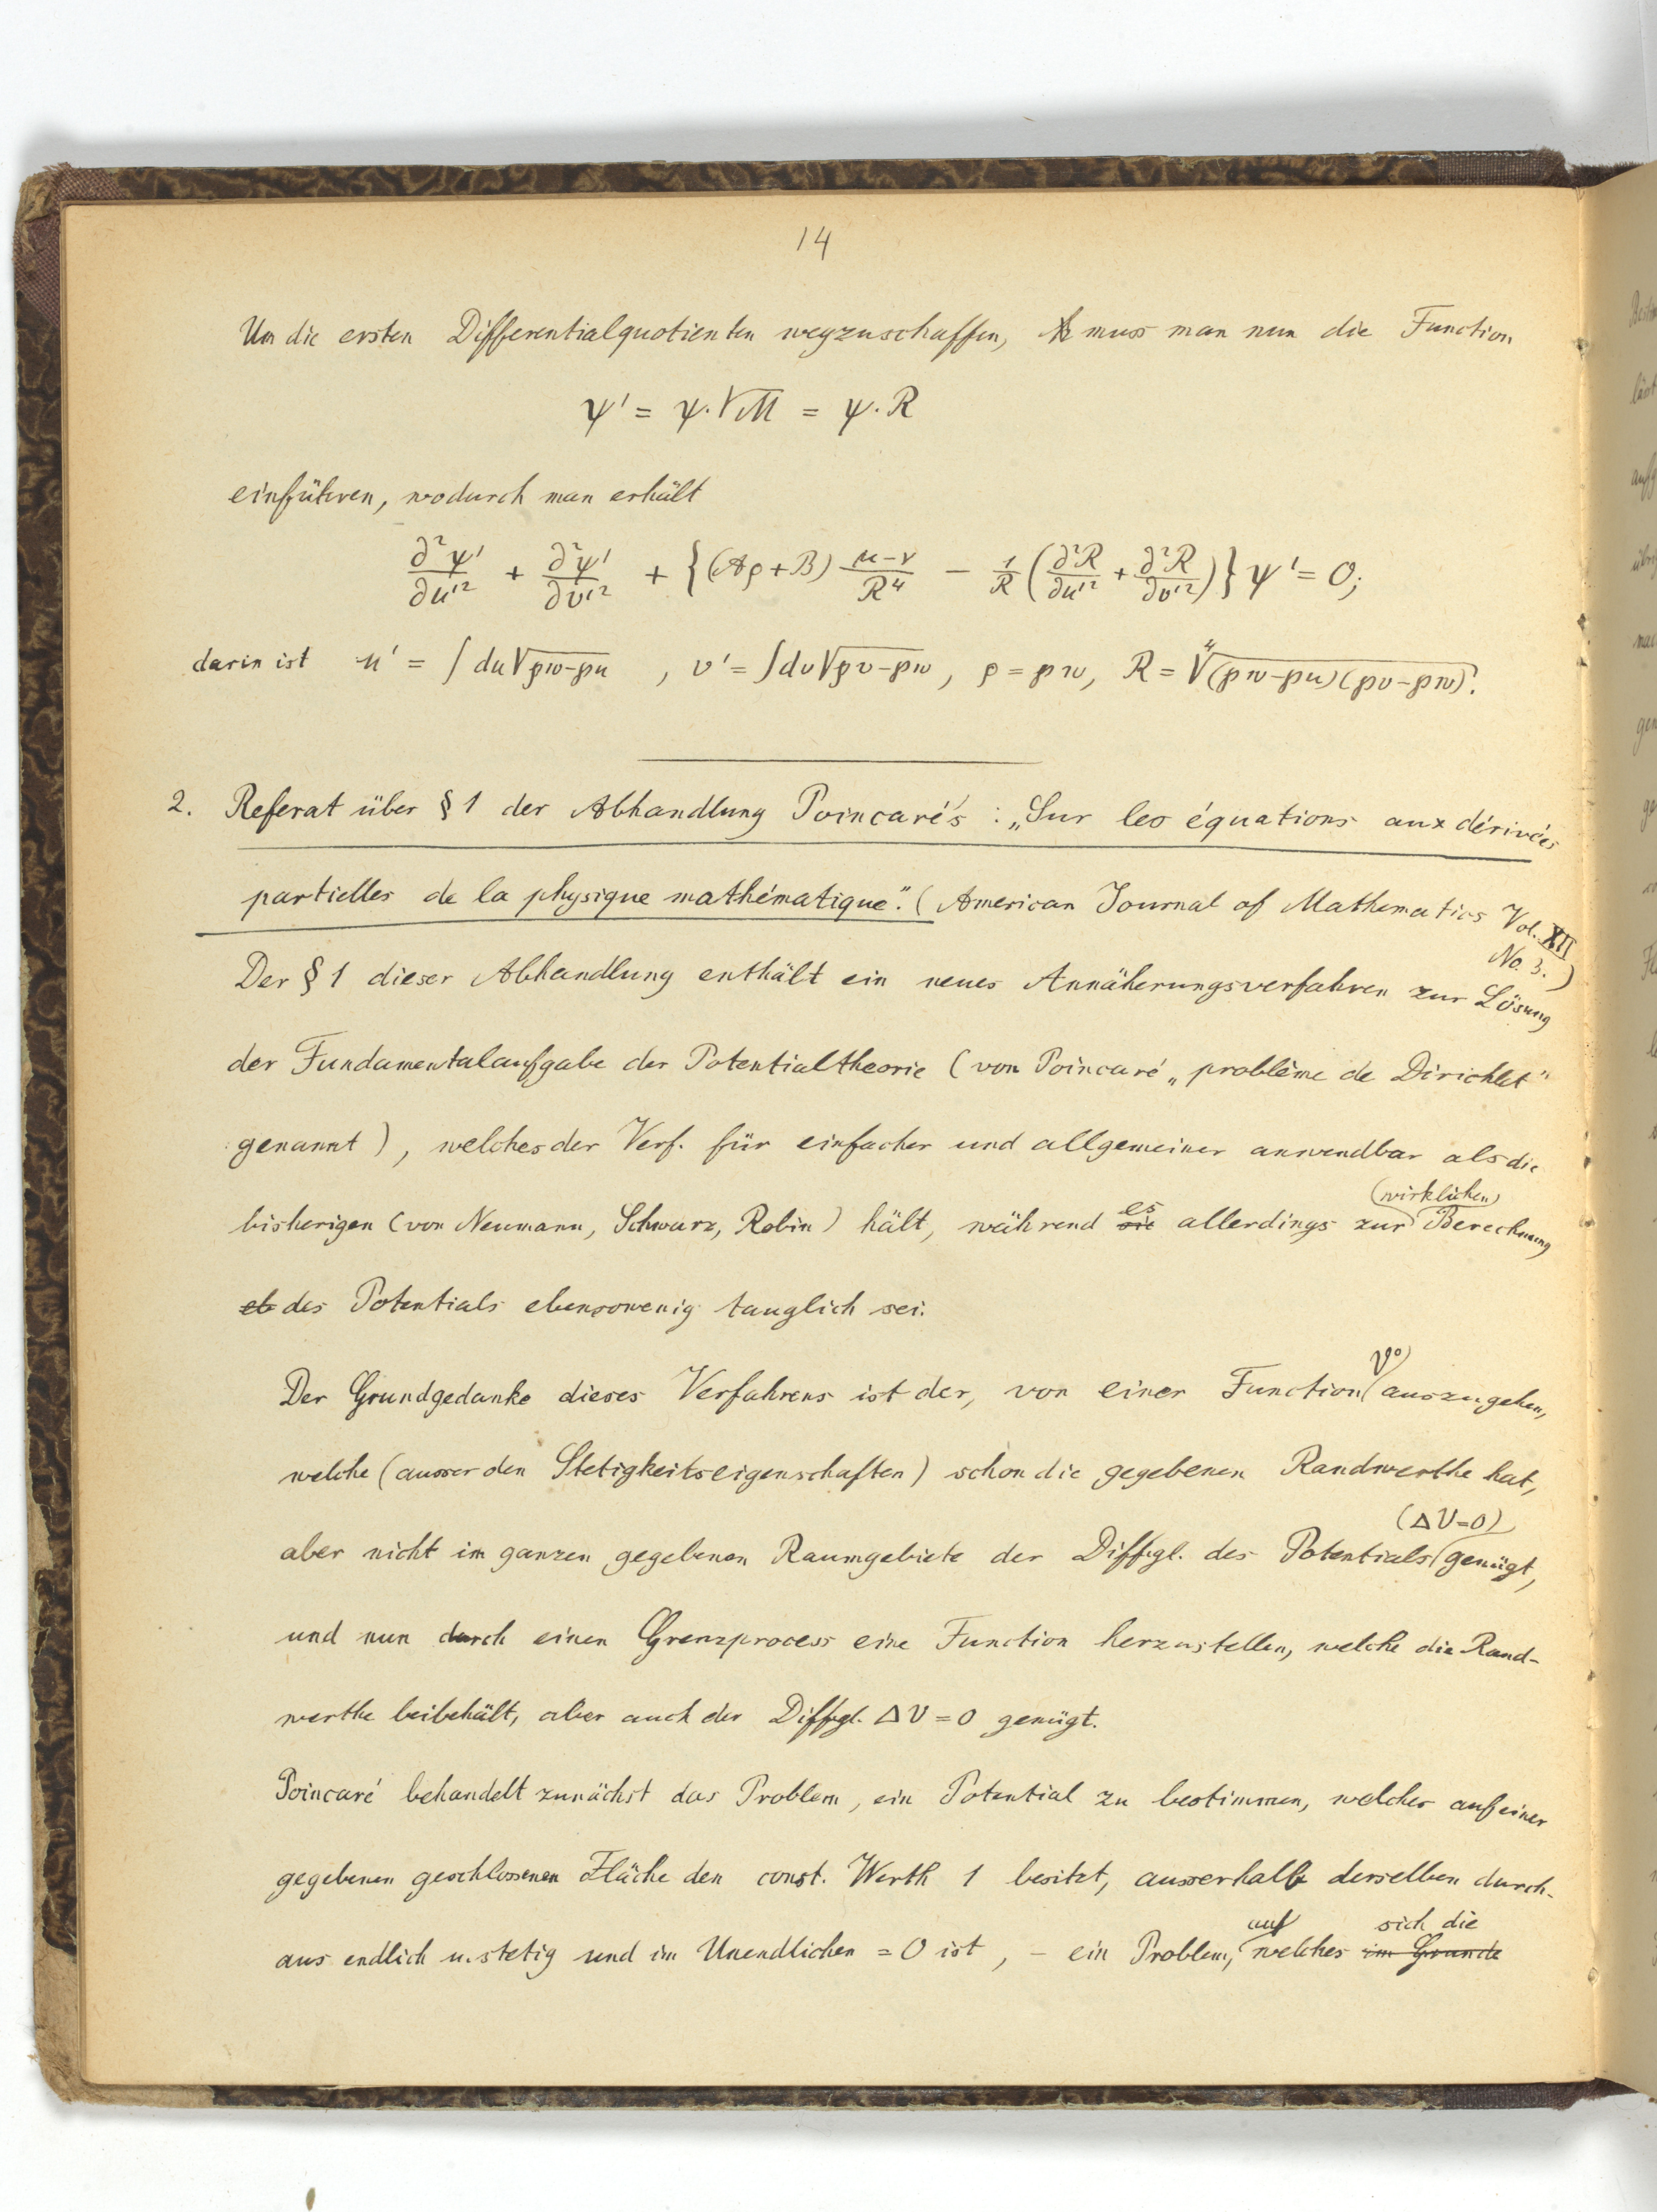 14
Um die ersten Differentialquotienten wegzuschaffen, muss man nun die Function
ψ' = ψ·√M = ψ·R
einführen, wodurch man erhält
∂²ψ'/∂u'² + ∂²ψ'/∂v'² + {(Aρ+B) (μ-ν)/R⁴ - 1/R (∂²R/∂u'² + ∂²R/∂v'²)} ψ' = 0;
darin ist u' = ∫du√(℘w-℘u) , v' = ∫dv√(℘v-℘w), ρ = ℘w, R = ∜((℘w-℘u)(℘v-℘w)).
2. Referat über § 1 der Abhandlung Poincaré's: „Sur les équations aux dérivées
partielles de la physique mathématique". (American Journal of Mathematics Vol. XII
No. 3.)
Der § 1 dieser Abhandlung enthält ein neues Annäherungsverfahren zur Lösung
der Fundamentalaufgabe der Potentialtheorie (von Poincaré „problème de Dirichlet"
genannt), welches der Verf. für einfacher und allgemeiner anwendbar als die
bisherigen (von Neumann, Schwarz, Robin) hält, während ~~sie~~ es allerdings zur (wirklichen) Berechnung
~~eb~~ des Potentials ebensowenig tauglich sei.
Der Grundgedanke dieses Verfahrens ist der, von einer Function V⁰ auszugehen,
welche (ausser den Stetigkeitseigenschaften) schon die gegebenen Randwerthe hat,
aber nicht im ganzen gegebenen Raumgebiete der Diffgl. des Potentials (ΔV=0) genügt,
und nun durch einen Grenzprocess eine Function herzustellen, welche die Rand-
werthe beibehält, aber auch der Diffgl. ΔV = 0 genügt.
Poincaré behandelt zunächst das Problem, ein Potential zu bestimmen, welches auf einer
gegebenen geschlossenen Fläche den const. Werth 1 besitzt, ausserhalb derselben durch-
aus endlich u. stetig und im Unendlichen = 0 ist, – ein Problem, auf welches ~~im Grunde~~ sich die